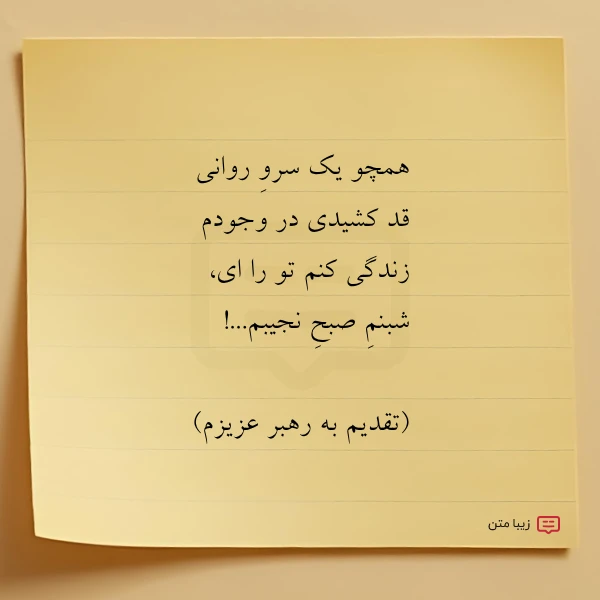 همچو یک سروِ روانی
قد کشیدی در وجودم
زندگی کنم تو را ای،
شبنمِ صبحِ نجیبم...!
(تقدیم به رهبر عزیزم)
زیبا متن